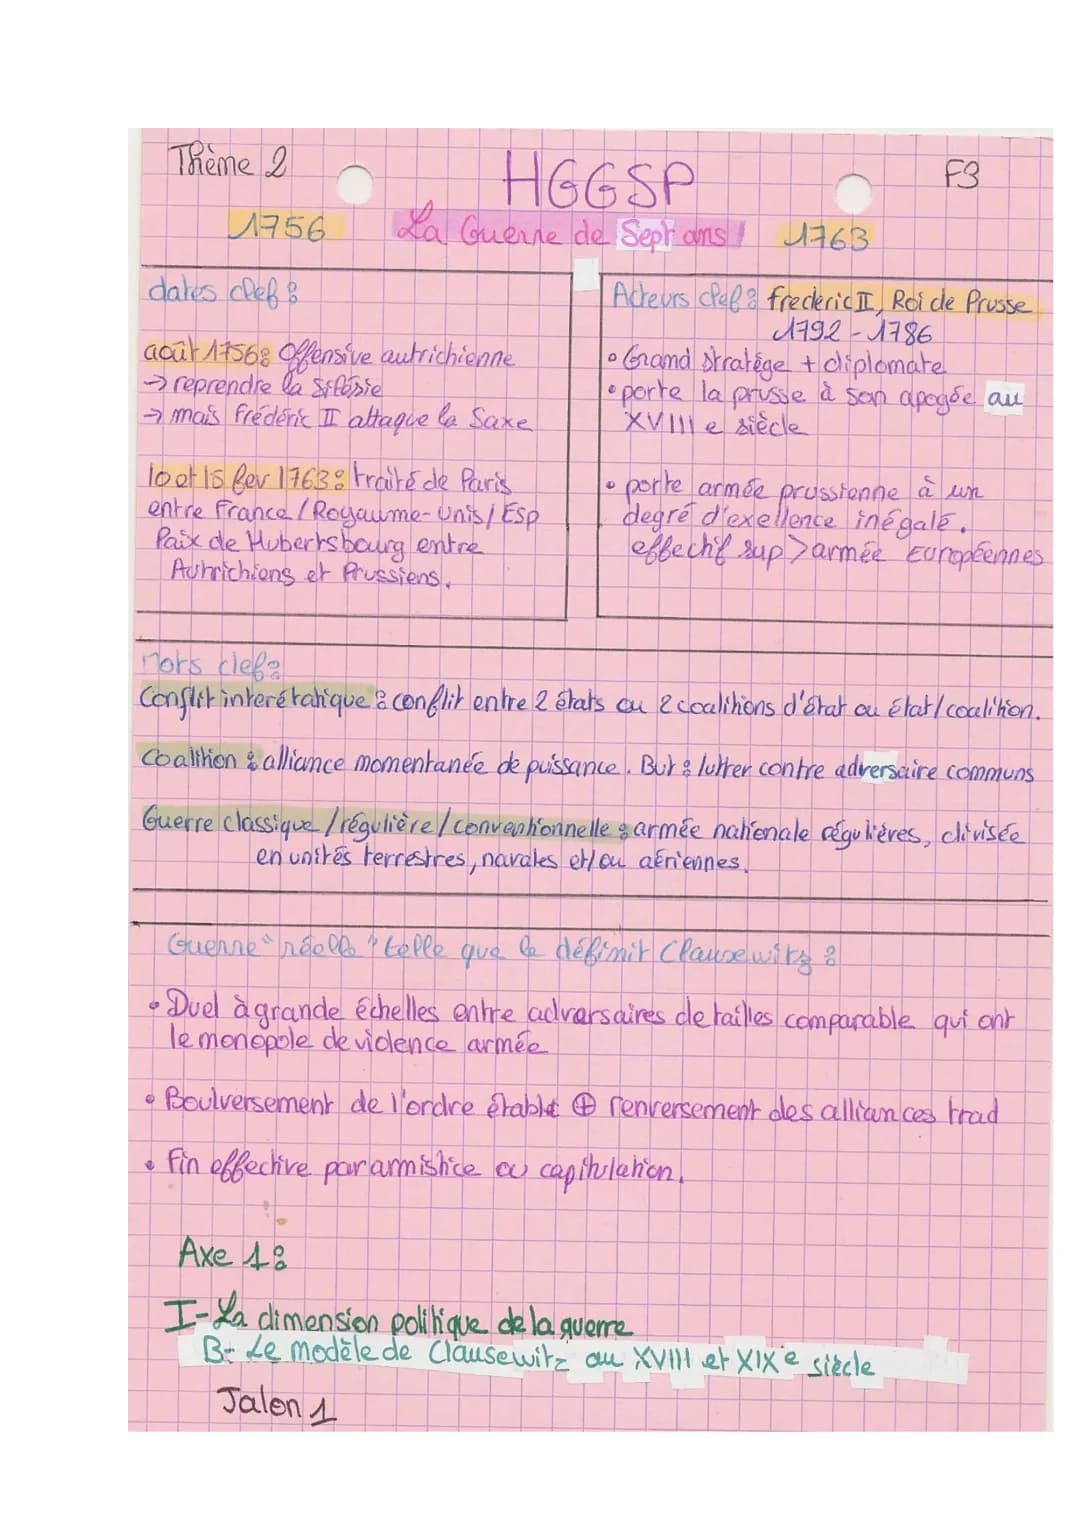 Thème 2
HGGSP
F3
1756
La Guerre de Sept ans !
1763
dates clef :
août 1756 : Offensive autrichienne
→ reprendre la Silésie
→ mais Frédéric II attaque la Saxe
10 et 15 fev 1763 : traité de Paris
entre France / Royaume-Unis / Esp
Paix de Hubertsbourg entre
Autrichiens et Prussiens.
Acteurs clef : frederic II, Roi de Prusse
1792 - 1786
• Grand stratège + diplomate
• porte la prusse à son apogée au
XVIII e siècle
• porte armée prussienne à un
degré d'exellence inégalé.
effectif sup > armée Européennes
mots clef :
Conflit interétatique : conflit entre 2 états ou 2 coalitions d'état ou état/coalition.
Coalition : alliance momentanée de puissance. But : lutter contre adversaire communs
Guerre classique / régulière / conventionnelle : armée nationale régulières, divisée
en unités terrestres, navales et/ou aériennes.
Guerre "réelle" telle que le définit Clausewitz :
• Duel à grande échelles entre adversaires de tailles comparable qui ont
le monopole de violence armée
• Boulversement de l'ordre établit ⊕ renversement des alliances trad
• Fin effective par armistice ou capitulation.
Axe 1 :
I - La dimension politique de la guerre
B - Le modèle de Clausewitz au XVIII et XIXe siècle
Jalon 1